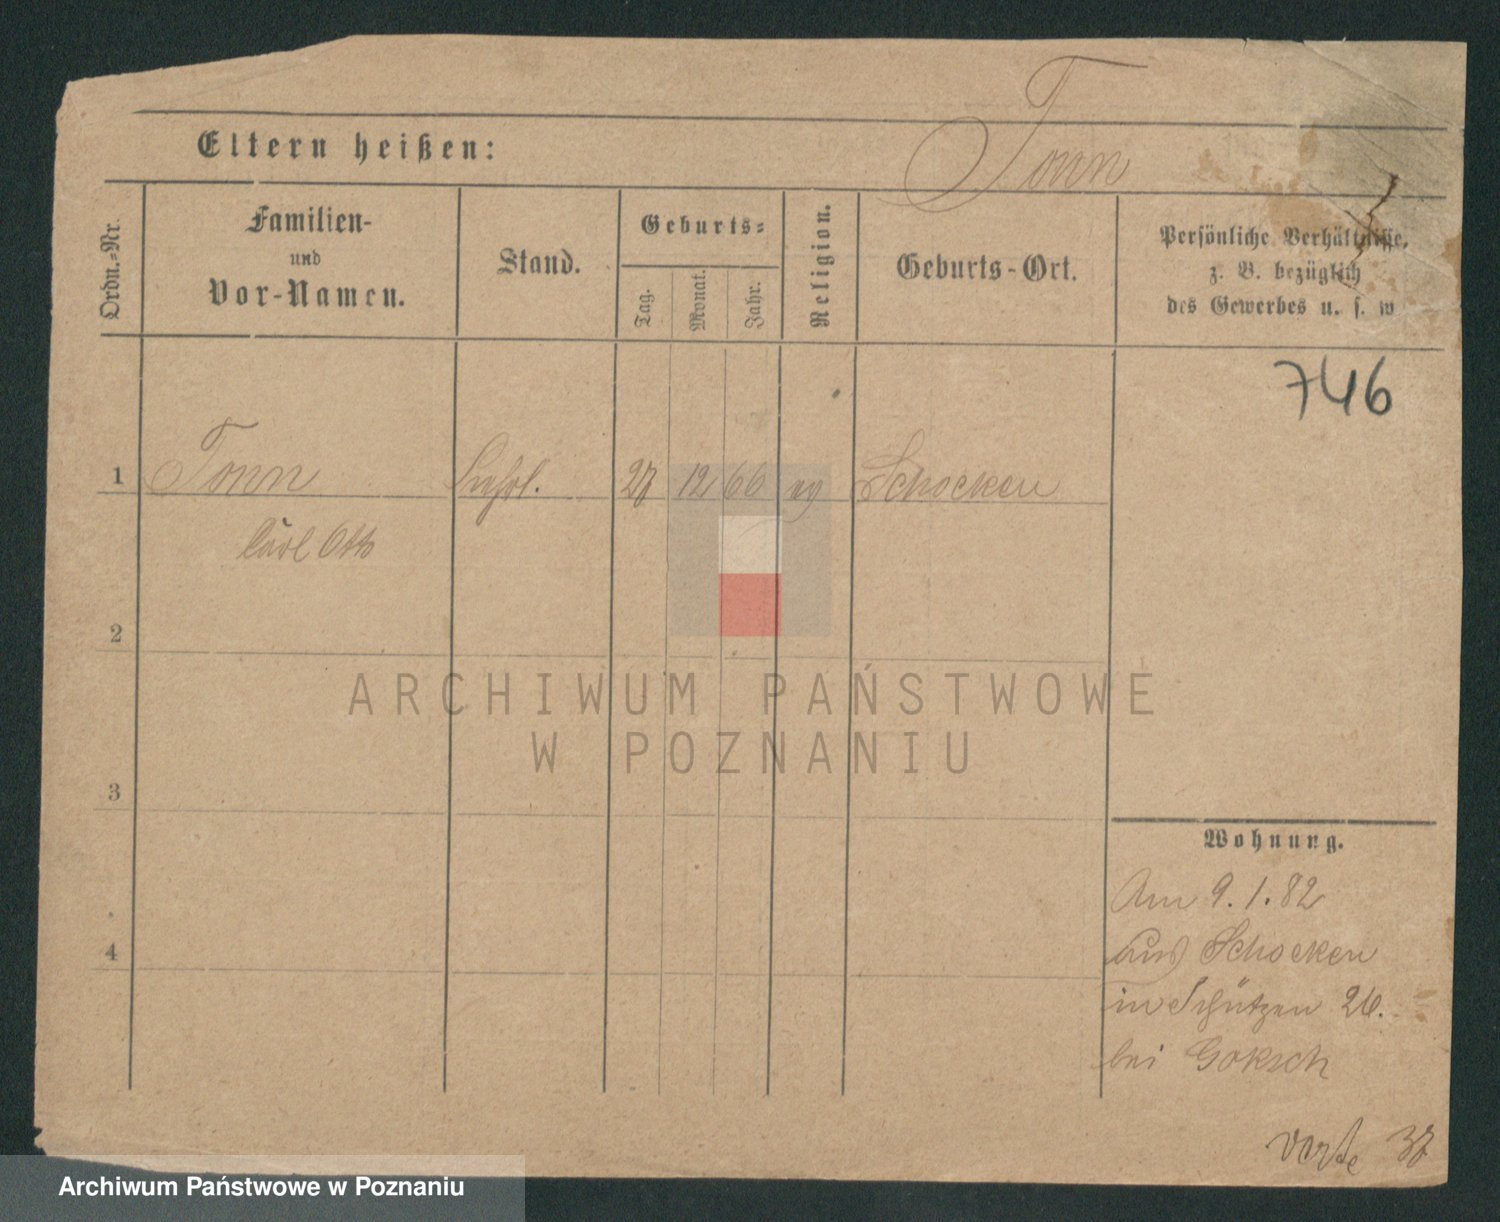 Tonn
Eltern heißen:
Ordn.-Nr.
Familien-
und
Vor-Namen.
Stand.
Geburts-
Tag.
Monat.
Jahr.
Religion.
Geburts-Ort.
Persönliche Verhältnisse,
z. B. bezüglich
des Gewerbes u. s. w
746
1 Tonn 27 12 66 ev Schocken
Carl Otto
2
3
4
ARCHIWUM PAŃSTWOWE
W POZNANIU
Wohnung.
Am 9. 1. 82
aus Schocken
in Schützen 26.
bei Goksch
verte 37
Archiwum Państwowe w Poznaniu